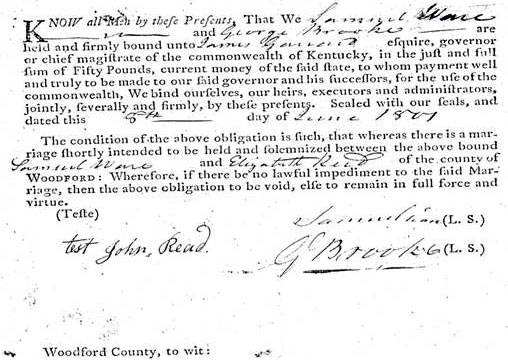 KNOW all Men by these Presents, That We Samuel Ware
and George Brooke are
held and firmly bound unto James Garrard esquire, governor
or chief magistrate of the commonwealth of Kentucky, in the just and full
sum of Fifty Pounds, current money of the said state, to whom payment well
and truly to be made to our said governor and his successors, for the use of the
commonwealth, We bind ourselves, our heirs, executors and administrators,
jointly, severally and firmly, by these presents. Sealed with our seals, and
dated this 8th day of June 1801
The condition of the above obligation is such, that whereas there is a mar-
riage shortly intended to be held and solemnized between the above bound
Samuel Ware and Elizabeth Read of the county of
WOODFORD: Wherefore, if there be no lawful impediment to the said Mar-
riage, then the above obligation to be void, else to remain in full force and
virtue.
(Teste)
Samuel (L. S.)
test John, Read.
G Brooke (L. S.)
Woodford County, to wit: